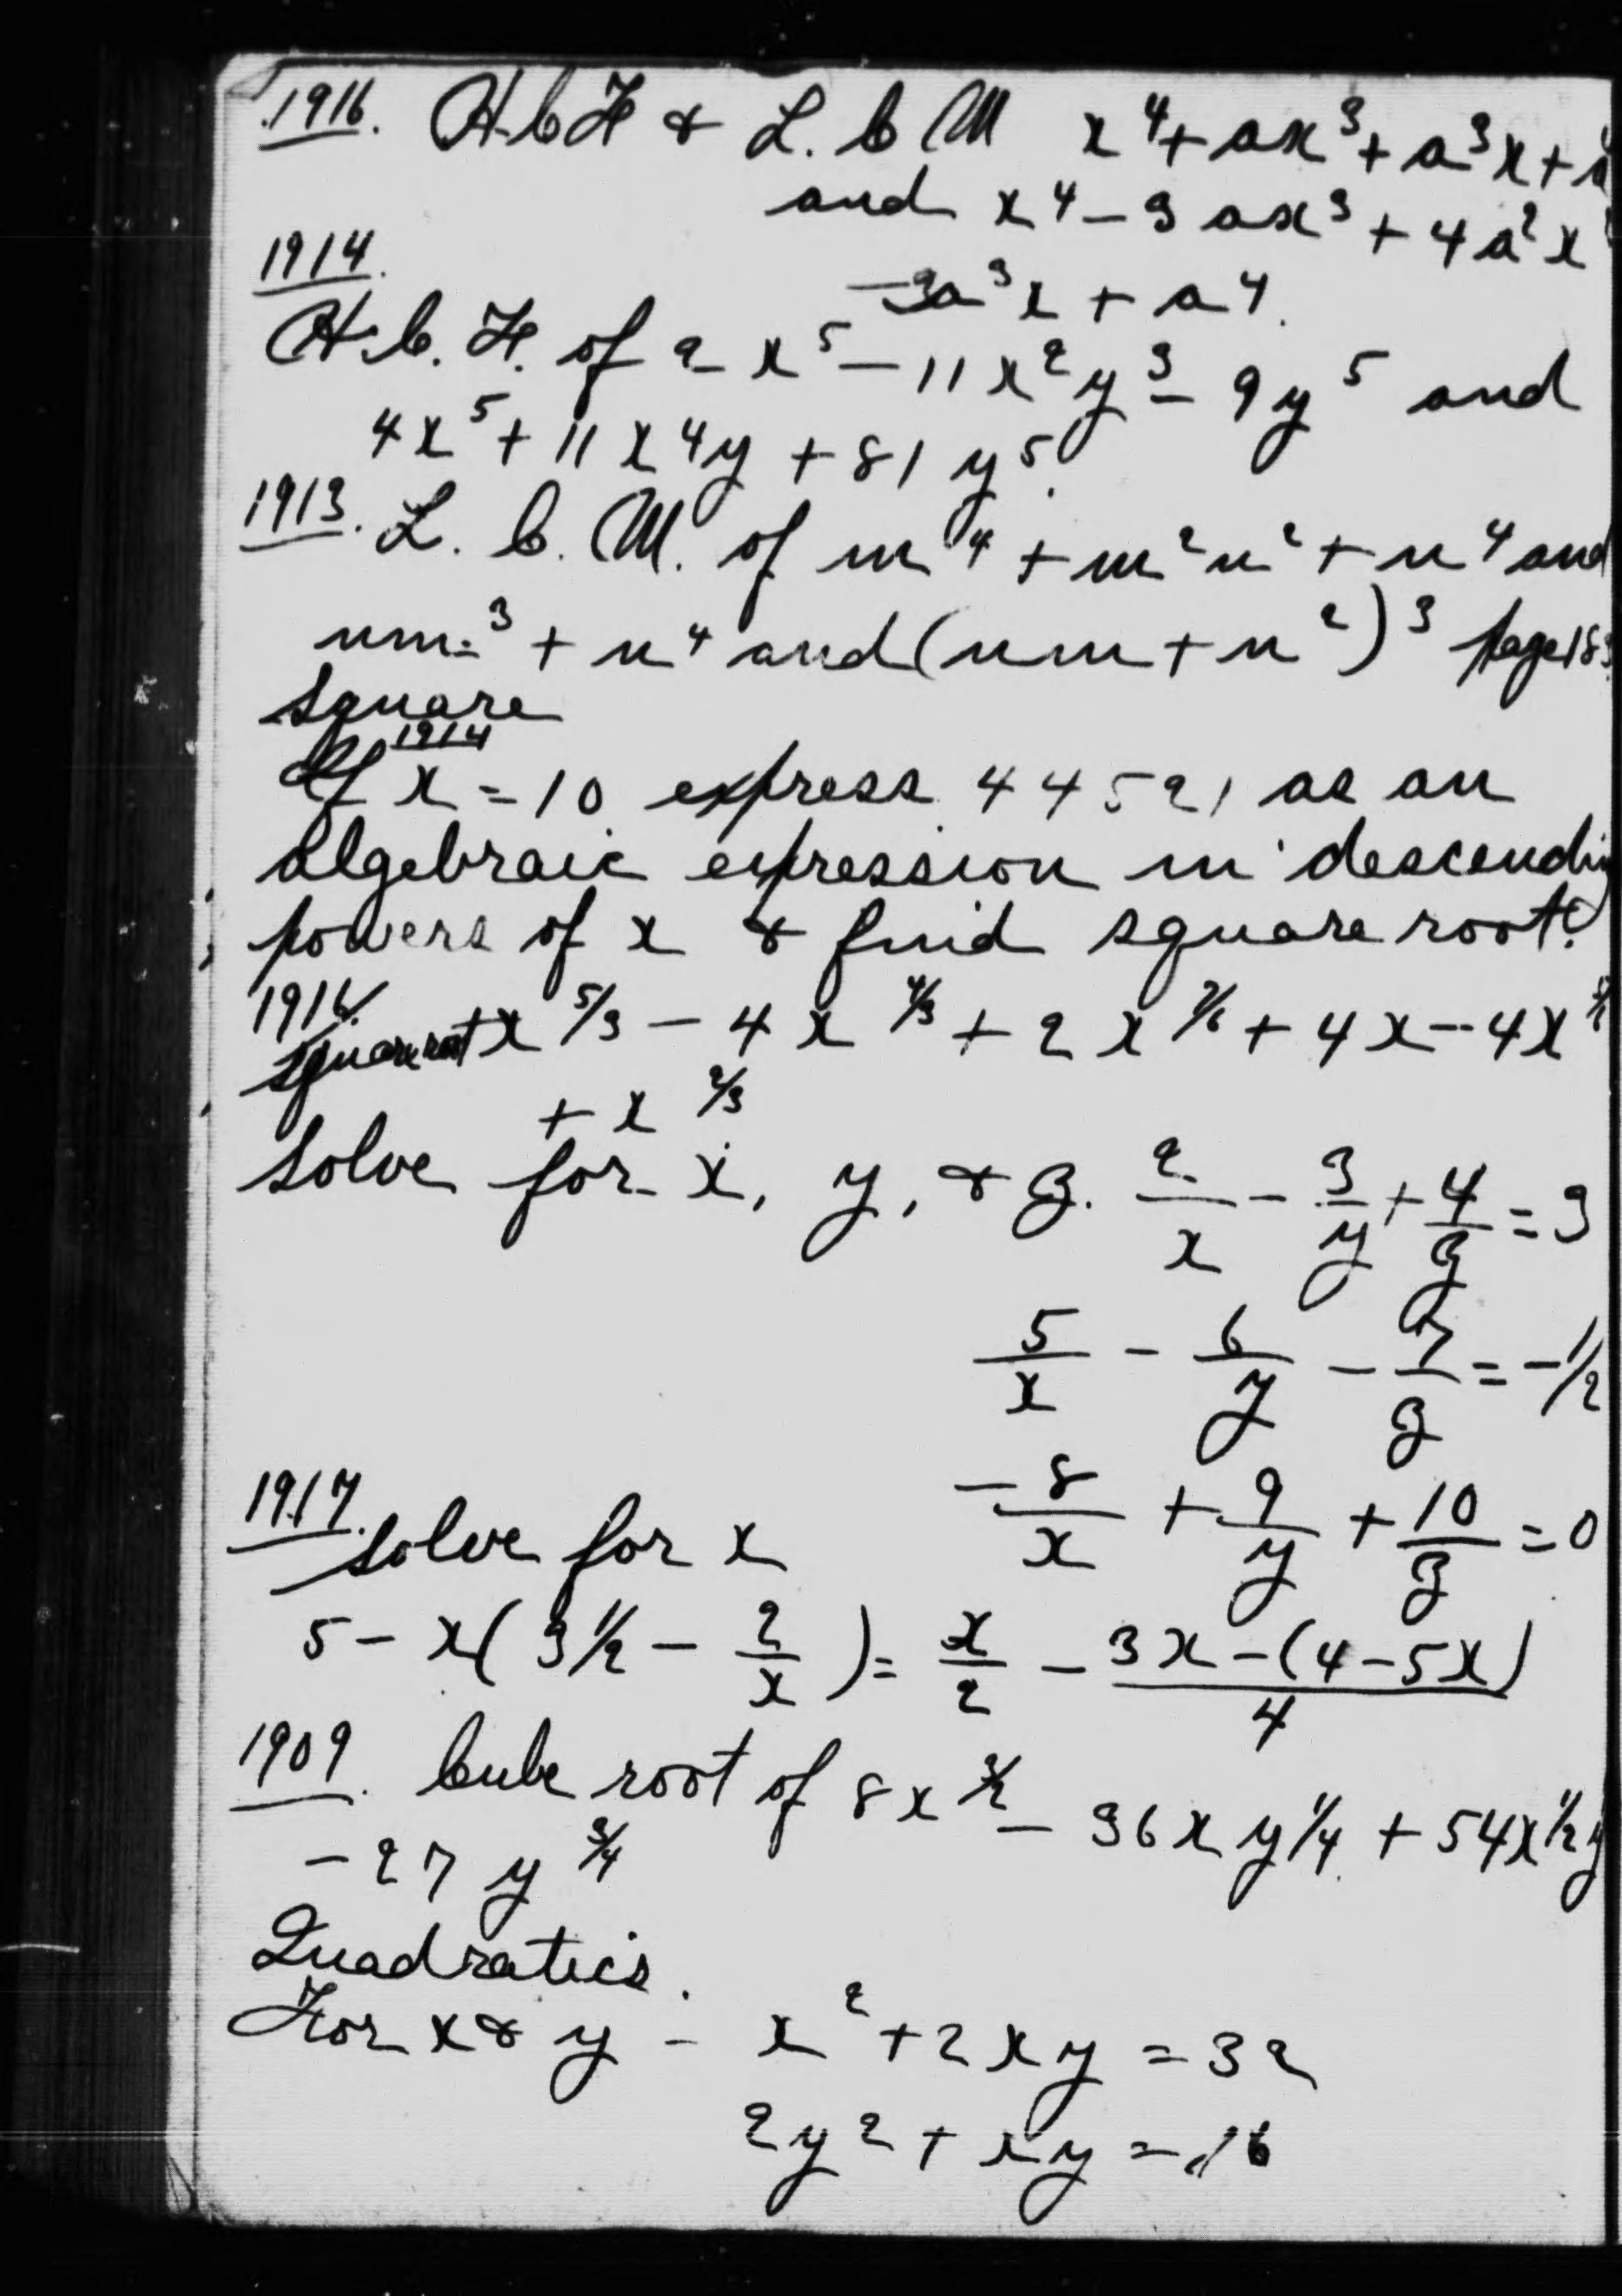 1916. H.C.F & L.C.M x⁴ + ax³ + a³x + a⁴
and x⁴ - 3ax³ + 4a²x²
-3a³x + a⁴.
1914.
H.C.F. of 2x⁵ - 11x²y³ - 9y⁵ and
4x⁵ + 11x⁴y + 81y⁵.
1913. L.C.M. of m⁴ + m²n² + n⁴ and
nm³ + n⁴ and (nm + n²)³ page 183
square
1914
If x = 10 express 44521 as an
algebraic expression in descending
powers of x & find square root.
1916.
square root x^5/3 - 4x^4/3 + 2x^7/6 + 4x - 4x
+ x^2/3
Solve for x, y, & z. 2/x - 3/y + 4/z = 3
5/x - 6/y - 7/z = -1/2
-8/x + 9/y + 10/z = 0
1917. Solve for x
5 - x(3 1/2 - 2/x) = x/2 - 3x - (4 - 5x)/4
1909. Cube root of 8x^3/2 - 36xy^1/4 + 54x^1/2 y
- 27y^3/4
Quadratics.
For x & y - x² + 2xy = 32
2y² + xy = 16